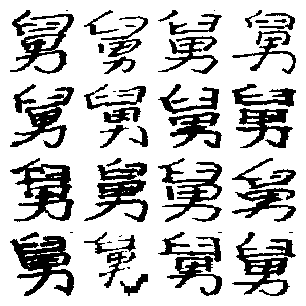 舅舅舅舅
舅舅舅舅
舅舅舅舅
舅舅舅舅